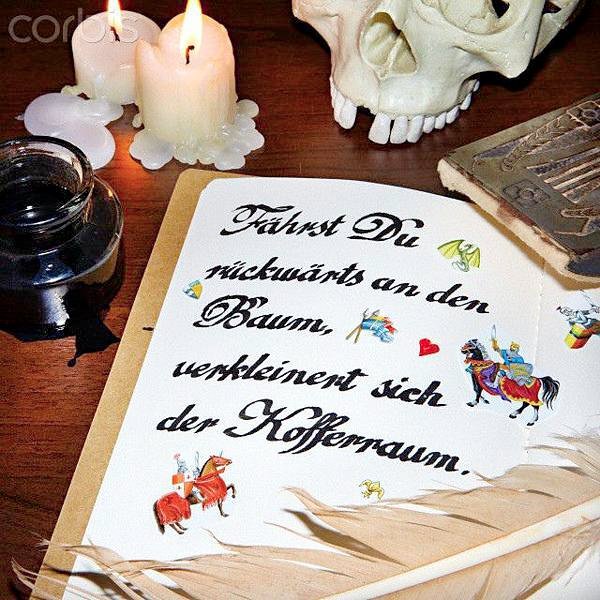 corbis
Fährst Du
rückwärts an den
Baum,
verkleinert sich
der Kofferraum.